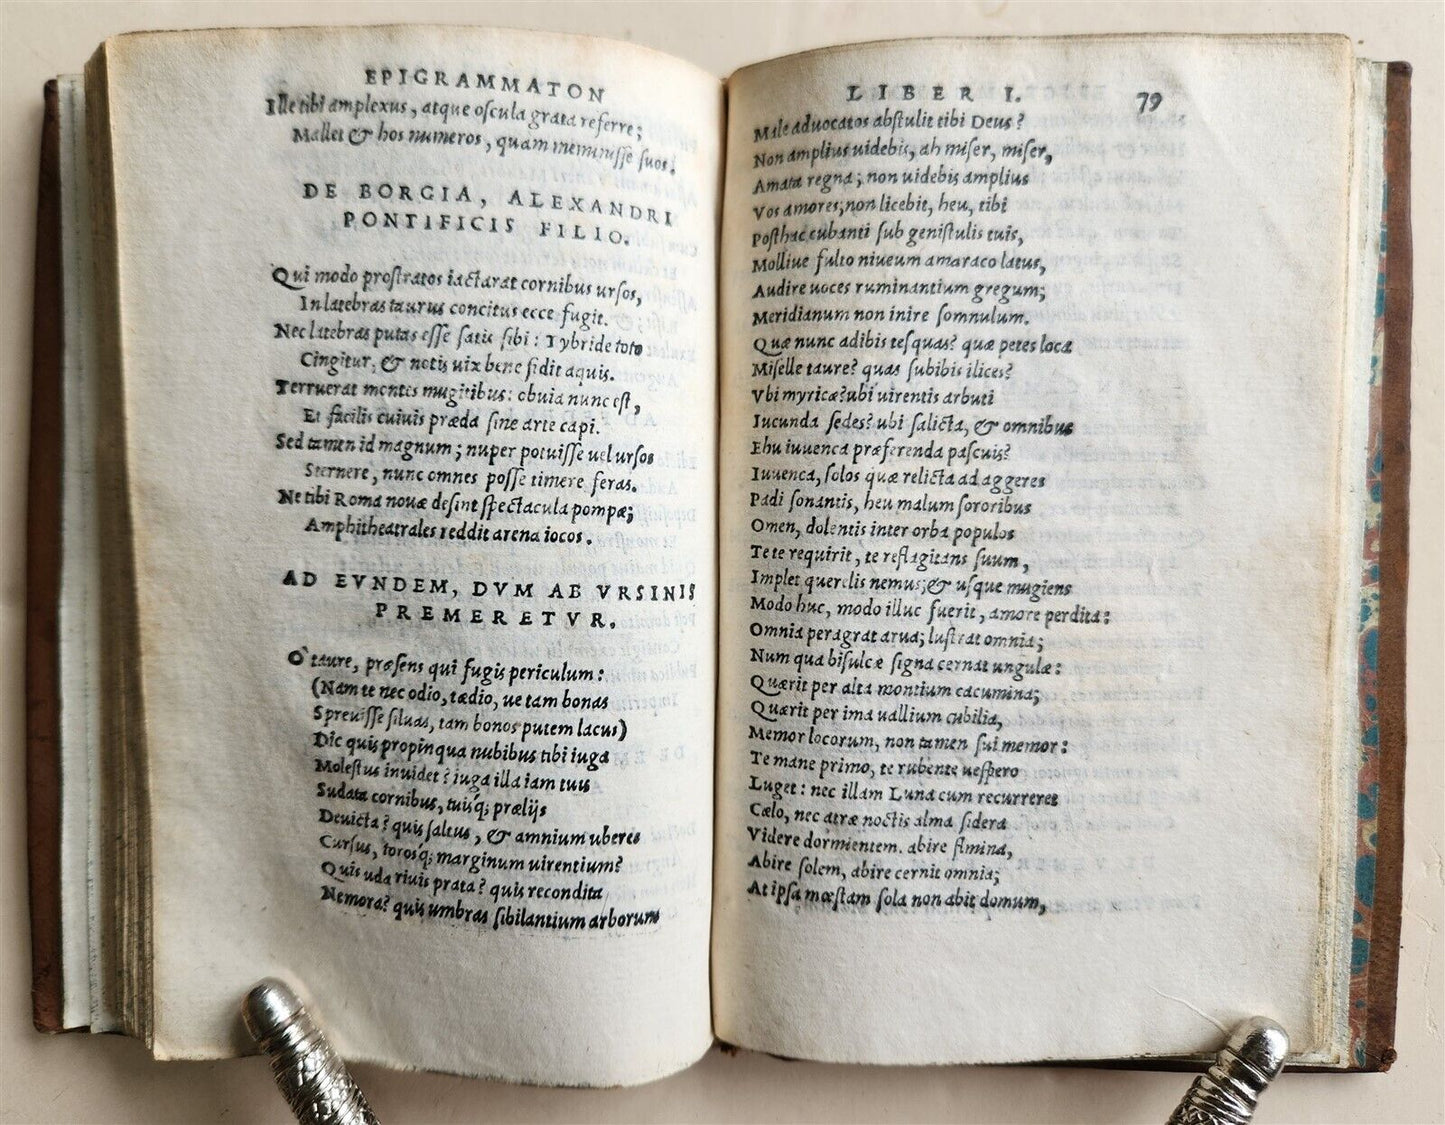 EPIGRAMMATON
Ille tibi amplexus, atque oscula grata referre;
Mallet & hos numeros, quam meminisse suos!
DE BORGIA, ALEXANDRI
PONTIFICIS FILIO.
Qui modo prostratos iactarat cornibus ursos,
In latebras taurus concitus ecce fugit.
Nec latebras putas esse satis sibi: Tybride toto
Cingitur, & notis uix bene fidit aquis.
Terruerat montes mugitibus: obuia nunc est,
Et facilis cuiuis præda sine arte capi.
Sed tamen id magnum; nuper potuisse uel ursos
Sternere, nunc omnes posse timere feras.
Ne tibi Roma nouæ desint spectacula pompæ;
Amphitheatrales reddit arena iocos.
AD EVNDEM, DVM AB VRSINIS
PREMERETVR.
O' taure, præsens qui fugis periculum:
(Nam te nec odio, tædio, ue tam bonas
Spreuisse siluas, tam bonos putem lacus)
Dic quis propinqua nubibus tibi iuga
Molestus inuidet? iuga illa iam tuis
Sudata cornibus, tuisq; prælijs
Deuicta? quis saltus, & amnium uberes
Cursus, torosq; marginum uirentium?
Quis uda riuis prata? quis recondita
Nemora? quis umbras sibilantium arborum
LIBER I. 79
Male aduocatos abstulit tibi Deus?
Non amplius uidebis, ah miser, miser,
Amata regna; non uidebis amplius
Vos amores; non licebit, heu, tibi
Posthac cubanti sub genistulis tuis,
Molliue fulto niueum amaraco latus,
Audire uoces ruminantium gregum;
Meridianum non inire somnulum.
Quæ nunc adibis tesquas? quæ petes loca
Miselle taure? quas subibis ilices?
Vbi myricæ? ubi uirentis arbuti
Iucunda sedes? ubi salicta, & omnibus
Ehu iuuenca præferenda pascuis?
Iuuenca, solos quæ relicta ad aggeres
Padi sonantis, heu malum sororibus
Omen, dolentis inter orba populos
Te te requirit, te reflagitans suum,
Implet querelis nemus; & usque mugiens
Modo huc, modo illuc fuerit, amore perdita:
Omnia peragrat arua; lustrat omnia;
Num qua bisulcæ signa cernat ungulæ:
Quærit per alta montium cacumina;
Quærit per ima uallium cubilia,
Memor locorum, non tamen sui memor:
Te mane primo, te rubente uespero
Luget: nec illam Luna cum recurreret
Cælo, nec atræ noctis alma sidera
Videre dormientem. abire flmina,
Abire solem, abire cernit omnia;
At ipsa mœstam sola non abit domum,